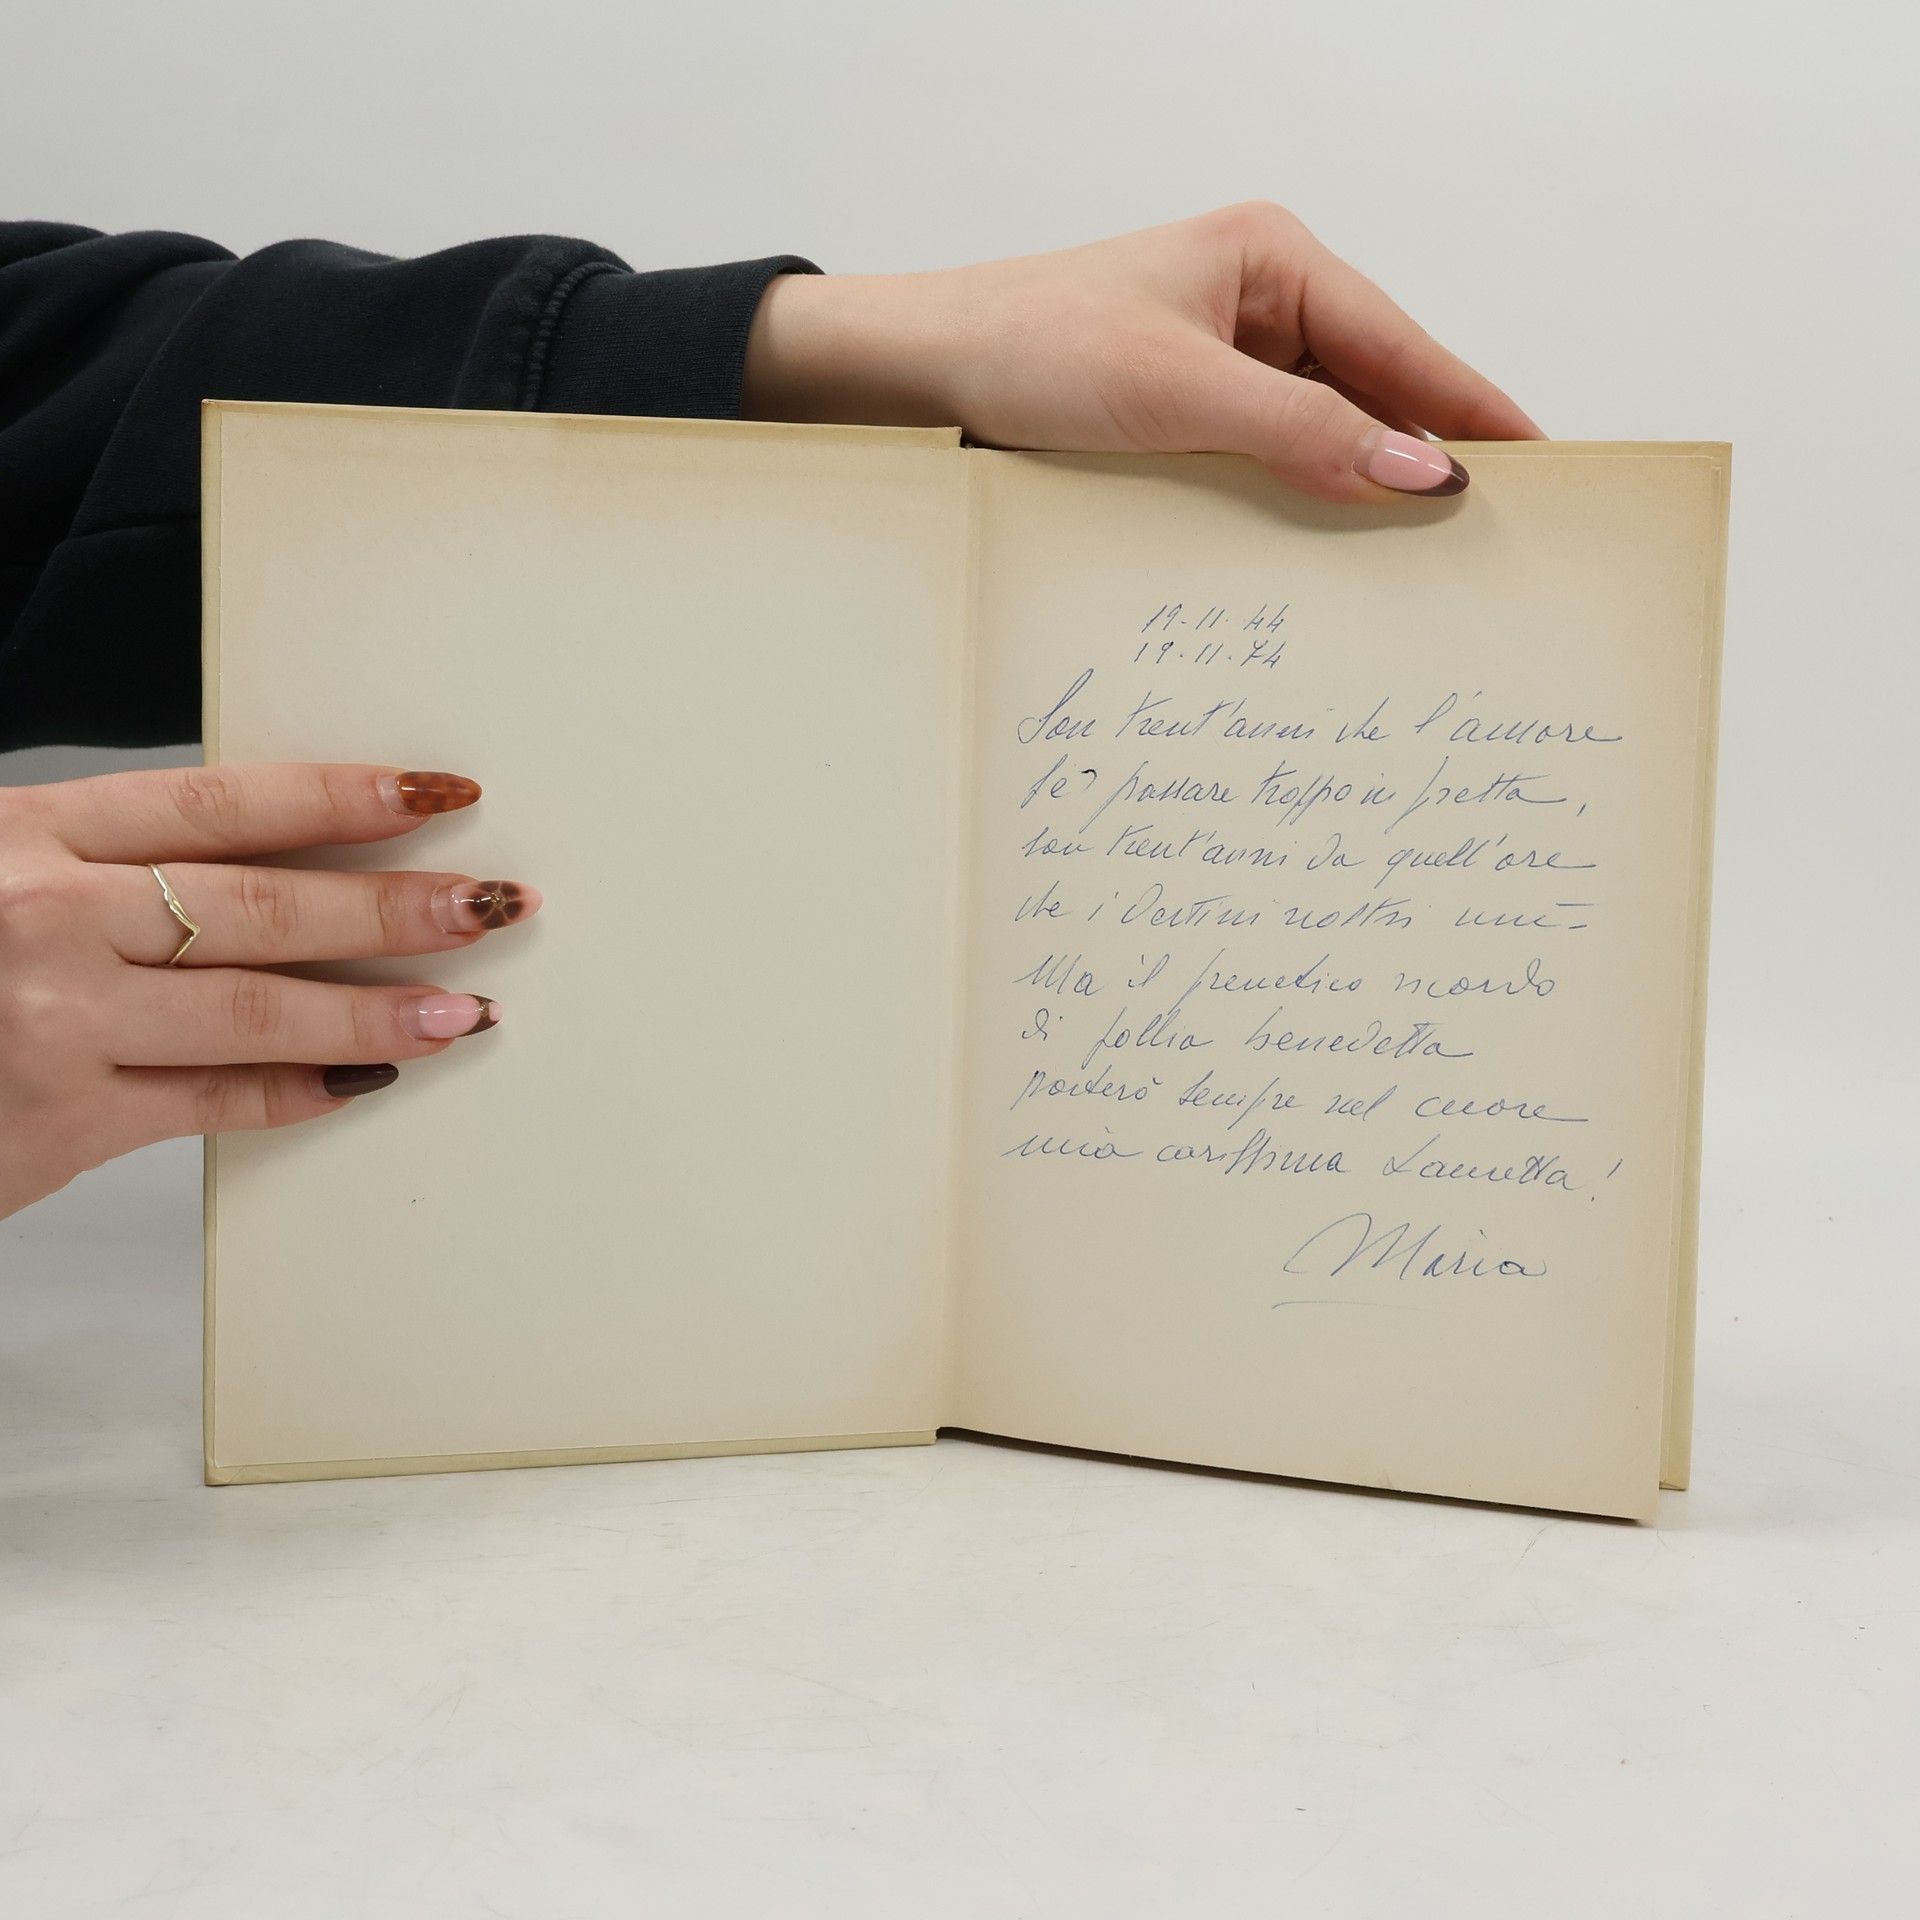 19-11-44
19-11-74
Son trent'anni che l'amore
fè passare troppo in fretta,
son trent'anni da quell'ore
che i destini nostri unì-
Ma il frenetico ricordo
di follia benedetta
porterò sempre nel cuore
mia carissima Lauretta!
Maria